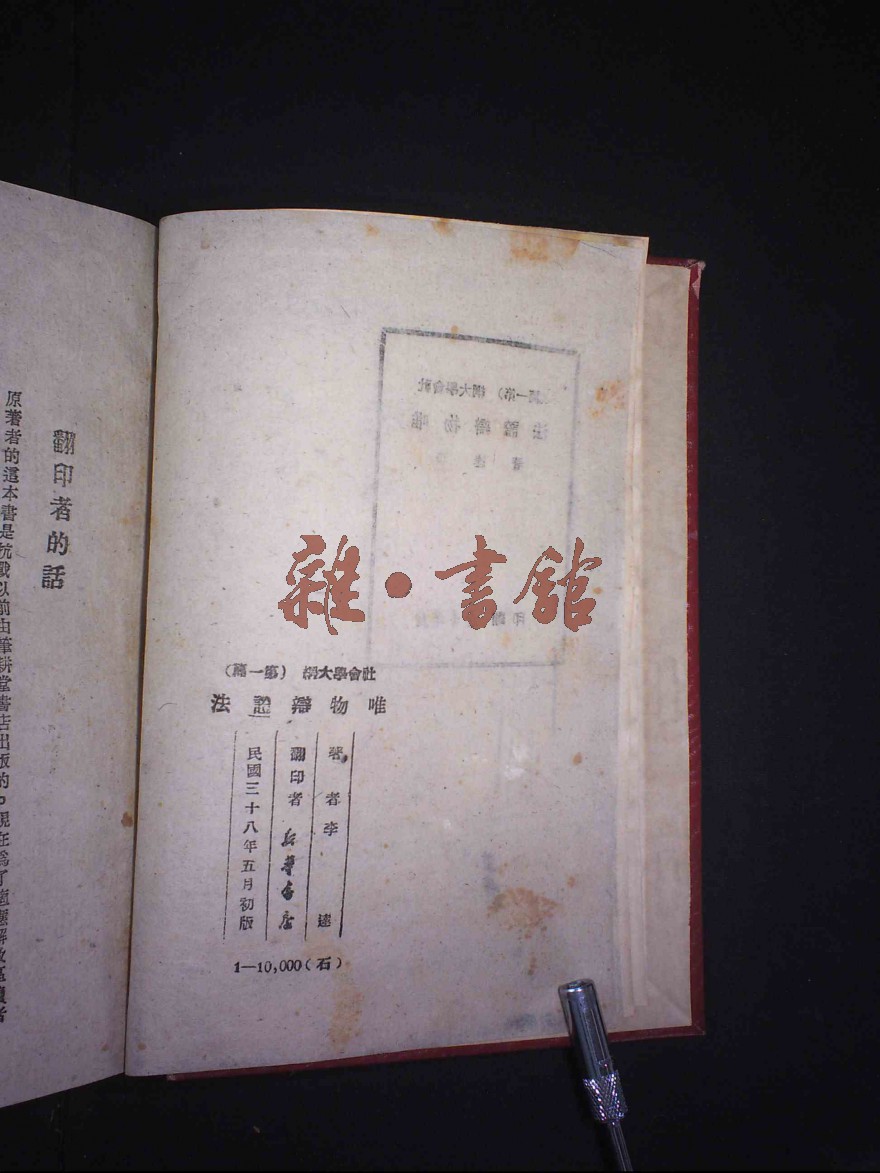 雜·書館
社會學大綱（第一篇）
唯物辯證法
著者李達
翻印者新華書店
民國三十八年五月初版
1—10,000（石）
翻印者的話
原著者的這本書是抗戰以前由筆耕堂書店出版的。現在為了適應解放區讀者